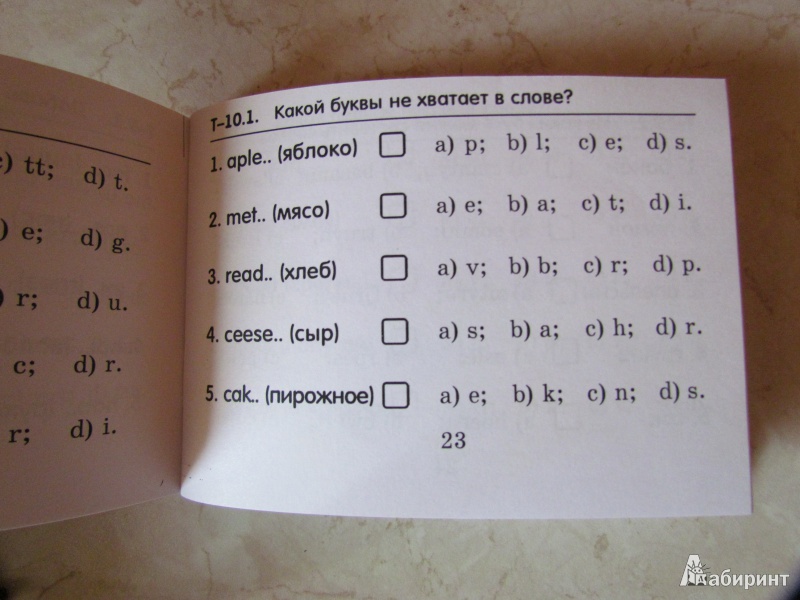 c) tt; d) t.
) e; d) g.
) r; d) u.
c; d) r.
r; d) i.
Т–10.1. Какой буквы не хватает в слове?
1. aple.. (яблоко) a) p; b) l; c) e; d) s.
2. met.. (мясо) a) e; b) a; c) t; d) i.
3. read.. (хлеб) a) v; b) b; c) r; d) p.
4. ceese.. (сыр) a) s; b) a; c) h; d) r.
5. cak.. (пирожное) a) e; b) k; c) n; d) s.
23
Лабиринт